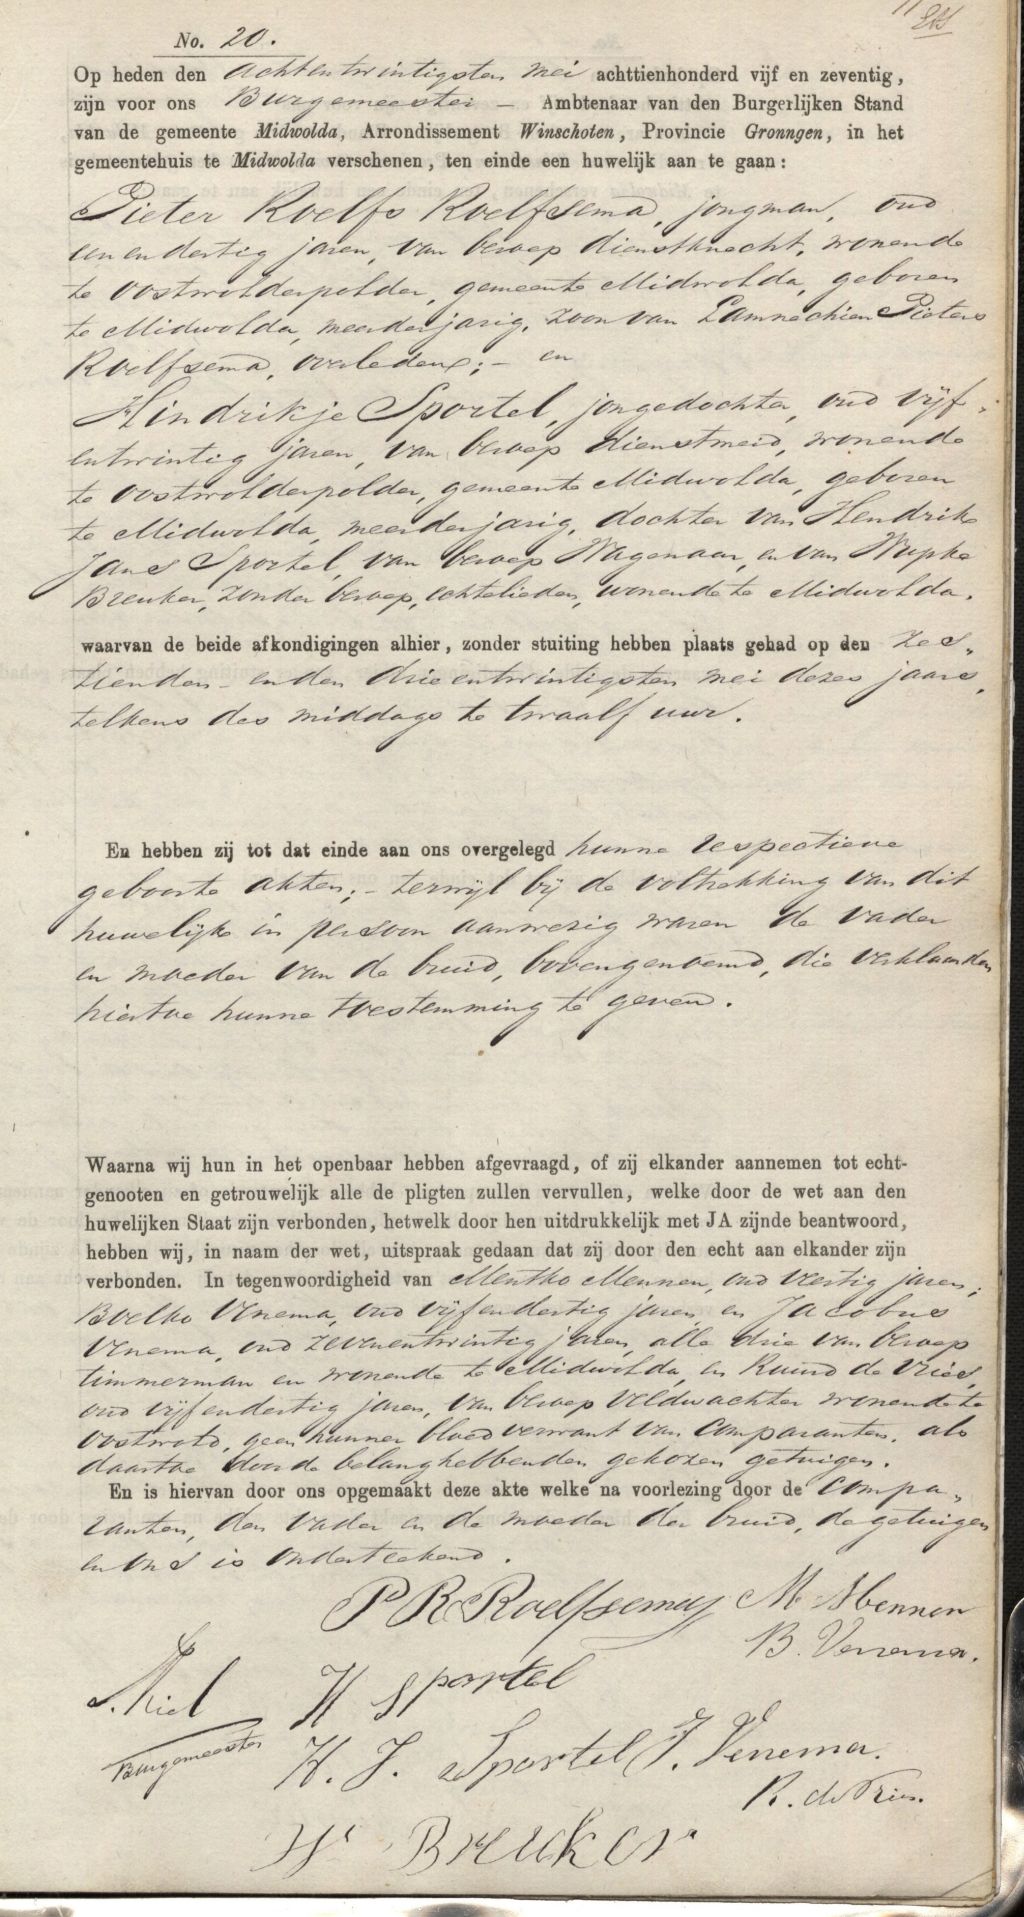 No. 20.
Op heden den achtentwintigsten mei achttienhonderd vijf en zeventig,
zijn voor ons Burgemeester — Ambtenaar van den Burgerlijken Stand
van de gemeente Midwolda, Arrondissement Winschoten, Provincie Gronngen, in het
gemeentehuis te Midwolda verschenen, ten einde een huwelijk aan te gaan:
Pieter Roelfs Roelfsema, jongman, oud
eenendertig jaren, van beroep dienstknecht, wonende
te Oostwolderpolder, gemeente Midwolda, geboren
te Midwolda, meerderjarig, zoon van Lamnechien Pieters
Roelfsema, overleden; – en
Hindrikje Sportel, jongedochter, oud vijf-
entwintig jaren, van beroep dienstmeid, wonende
te Oostwolderpolder, gemeente Midwolda, geboren
te Midwolda, meerderjarig, dochter van Hendrik
Jans Sportel, van beroep Wagenaar, en van Wupke
Breuker, zonder beroep, echtelieden, wonende te Midwolda.
waarvan de beide afkondigingen alhier, zonder stuiting hebben plaats gehad op den zes-
tienden – en den drieentwintigsten mei dezes jaars,
telkens des middags te twaalf uur.
En hebben zij tot dat einde aan ons overgelegd hunne respectieve
geboorte akten; – terwijl bij de voltrekking van dit
huwelijk in persoon aanwezig waren de vader
en moeder van de bruid, bovengenoemd, die verklaarden
hiertoe hunne toestemming te geven.
Waarna wij hun in het openbaar hebben afgevraagd, of zij elkander aannemen tot echt-
genooten en getrouwelijk alle de pligten zullen vervullen, welke door de wet aan den
huwelijken Staat zijn verbonden, hetwelk door hen uitdrukkelijk met JA zijnde beantwoord,
hebben wij, in naam der wet, uitspraak gedaan dat zij door den echt aan elkander zijn
verbonden. In tegenwoordigheid van Mentko Mennen, oud veertig jaren;
Boelko Venema, oud vijfendertig jaren, en Jacobus
Venema, oud zevenentwintig jaren, alle drie van beroep
timmerman en wonende te Midwolda, en Ruurd de Vries,
oud vijfendertig jaren, van beroep veldwachter wonende te
Oostwold, geen hunner bloedverwant van Comparanten, als
daartoe door de belanghebbenden gekozen getuigen.
En is hiervan door ons opgemaakt deze akte welke na voorlezing door de Compa-
ranten, den vader en de moeder der bruid, de getuigen
en ons is onderteekend.
P R Roelfsema M Mennen
B. Venema.
H Sportel
Burgemeester
H. J. Sportel J. Venema.
R. de Vries.
W Breuker